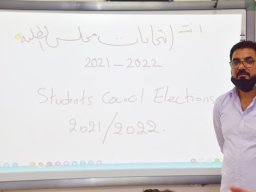 انتخابات مجلس الطلبة
2021-2022
Students Council Elections
2021/2022.